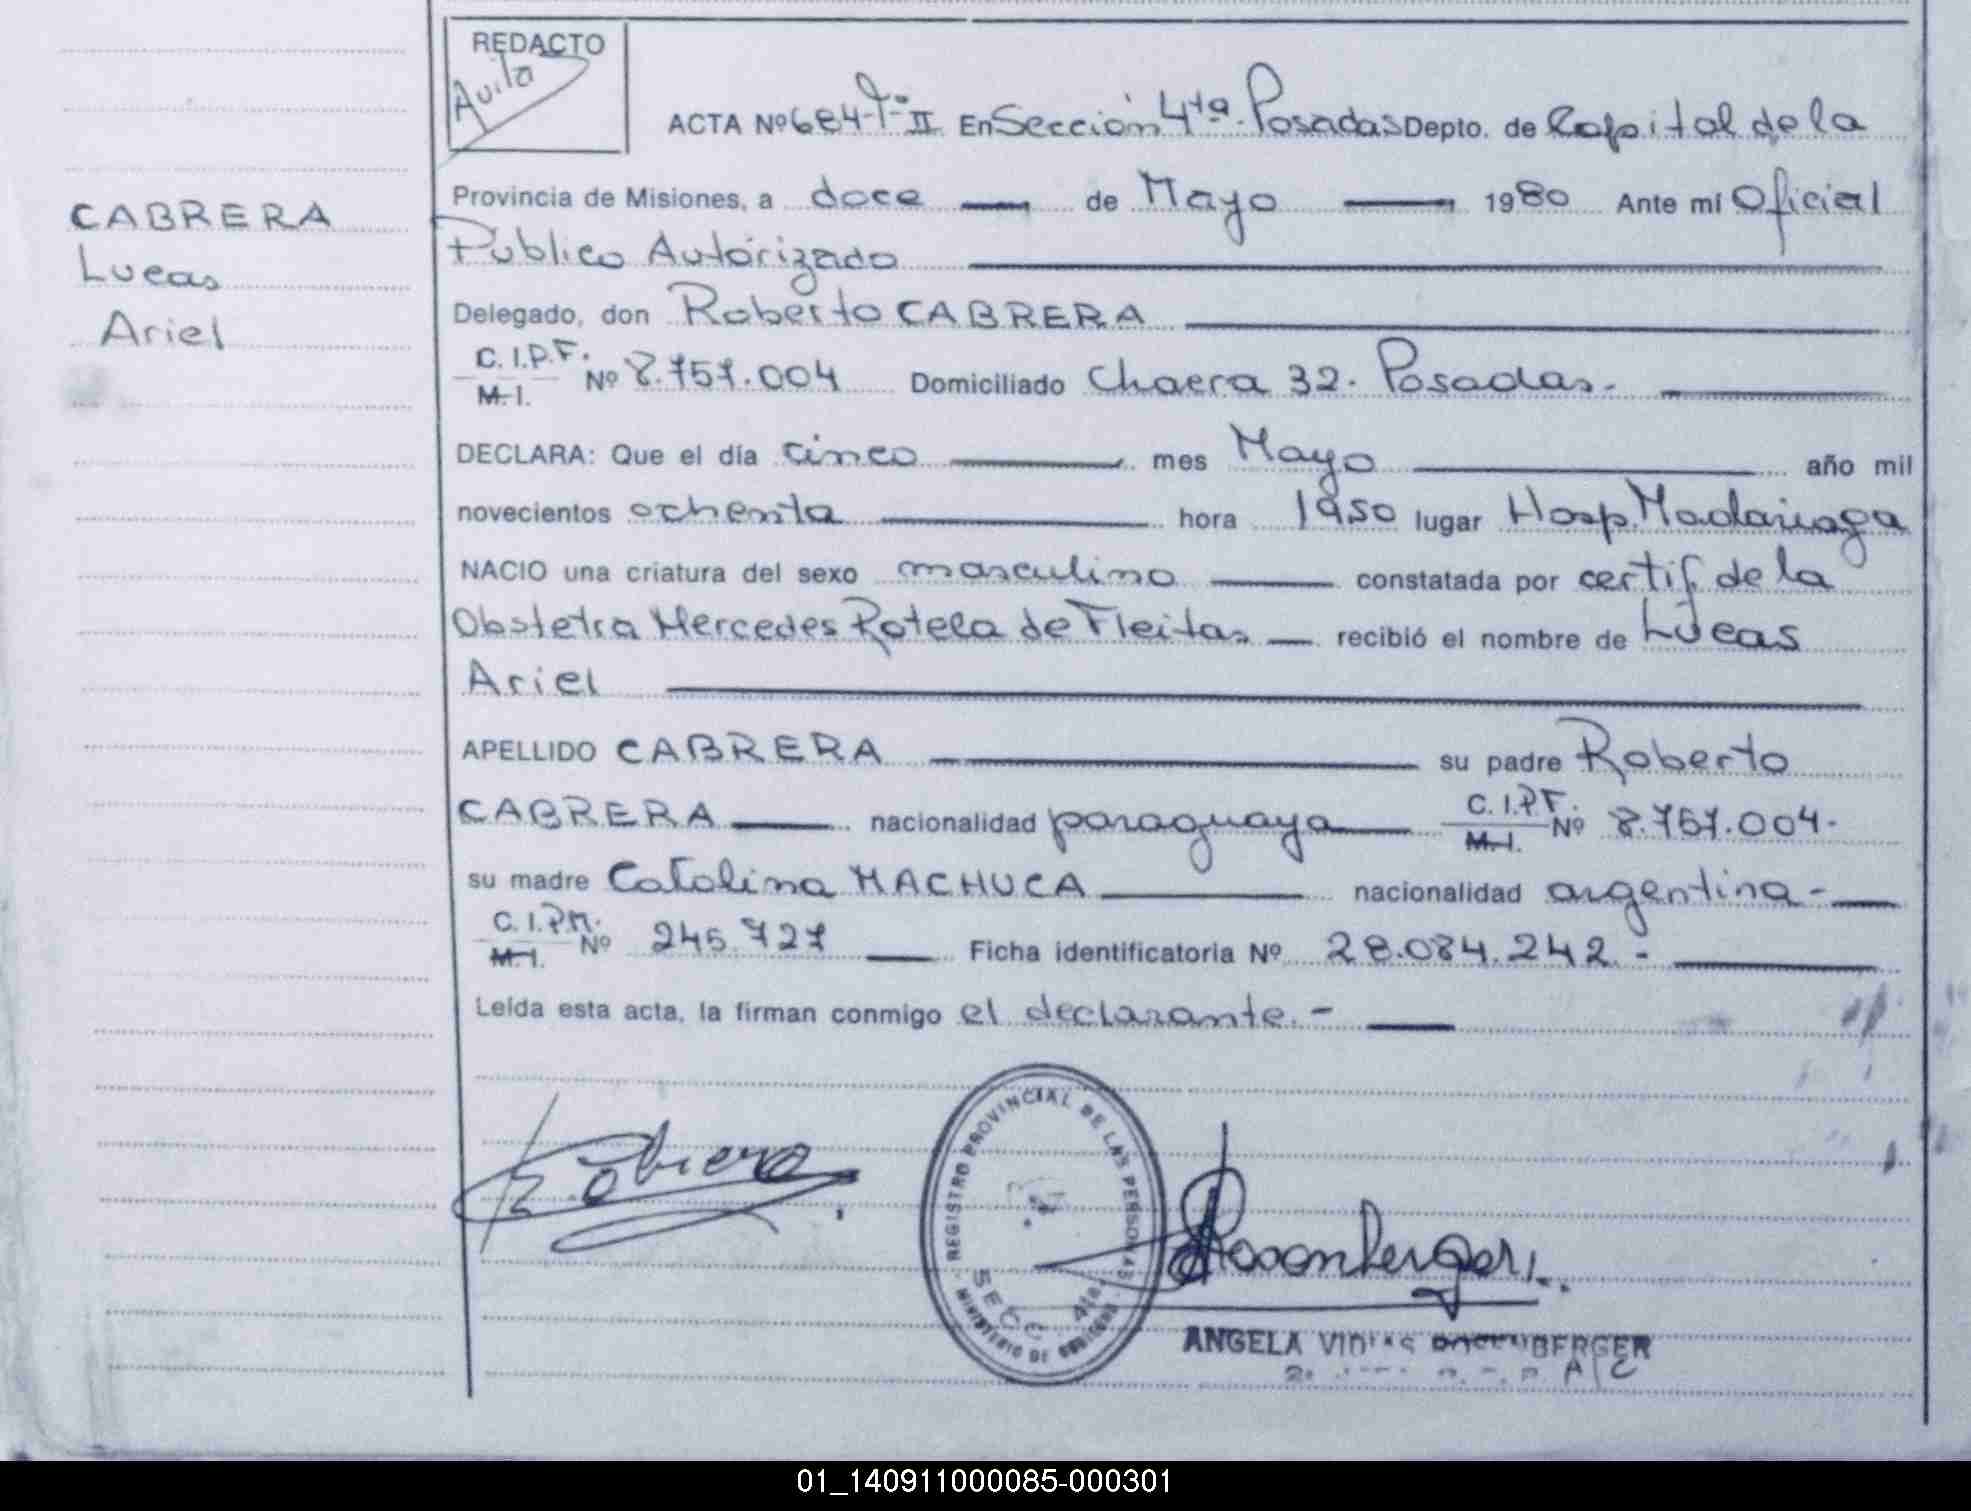 REDACTO
Avila
ACTA Nº 684-Tº II En Sección 4ta. Posadas Depto. de Capital de la
Provincia de Misiones, a doce de Mayo 1980 Ante mí Oficial
Público Autorizado
CABRERA
Lucas
Ariel
Delegado, don Roberto CABRERA
C.I.P.F.
M.I. Nº 8.757.004 Domiciliado Chacra 32. Posadas.
DECLARA: Que el día cinco mes Mayo año mil
novecientos ochenta hora 1950 lugar Hosp. Madariaga
NACIO una criatura del sexo masculino constatada por certif. de la
Obstetra Mercedes Rotela de Fleitas recibió el nombre de Lucas
Ariel
APELLIDO CABRERA su padre Roberto
CABRERA nacionalidad paraguaya C.I.P.F. M.I. Nº 8.757.004.
su madre Catalina MACHUCA nacionalidad argentina
C.I.P.M.
M.I. Nº 245.727 Ficha identificatoria Nº 28.084.242.-
Leída esta acta, la firman conmigo el declarante.-
REGISTRO PROVINCIAL DE LAS PERSONAS
SECC. 4ta.
MINISTERIO DE GOBIERNO
Rosenberger
ANGELA
A/C
01_140911000085-000301